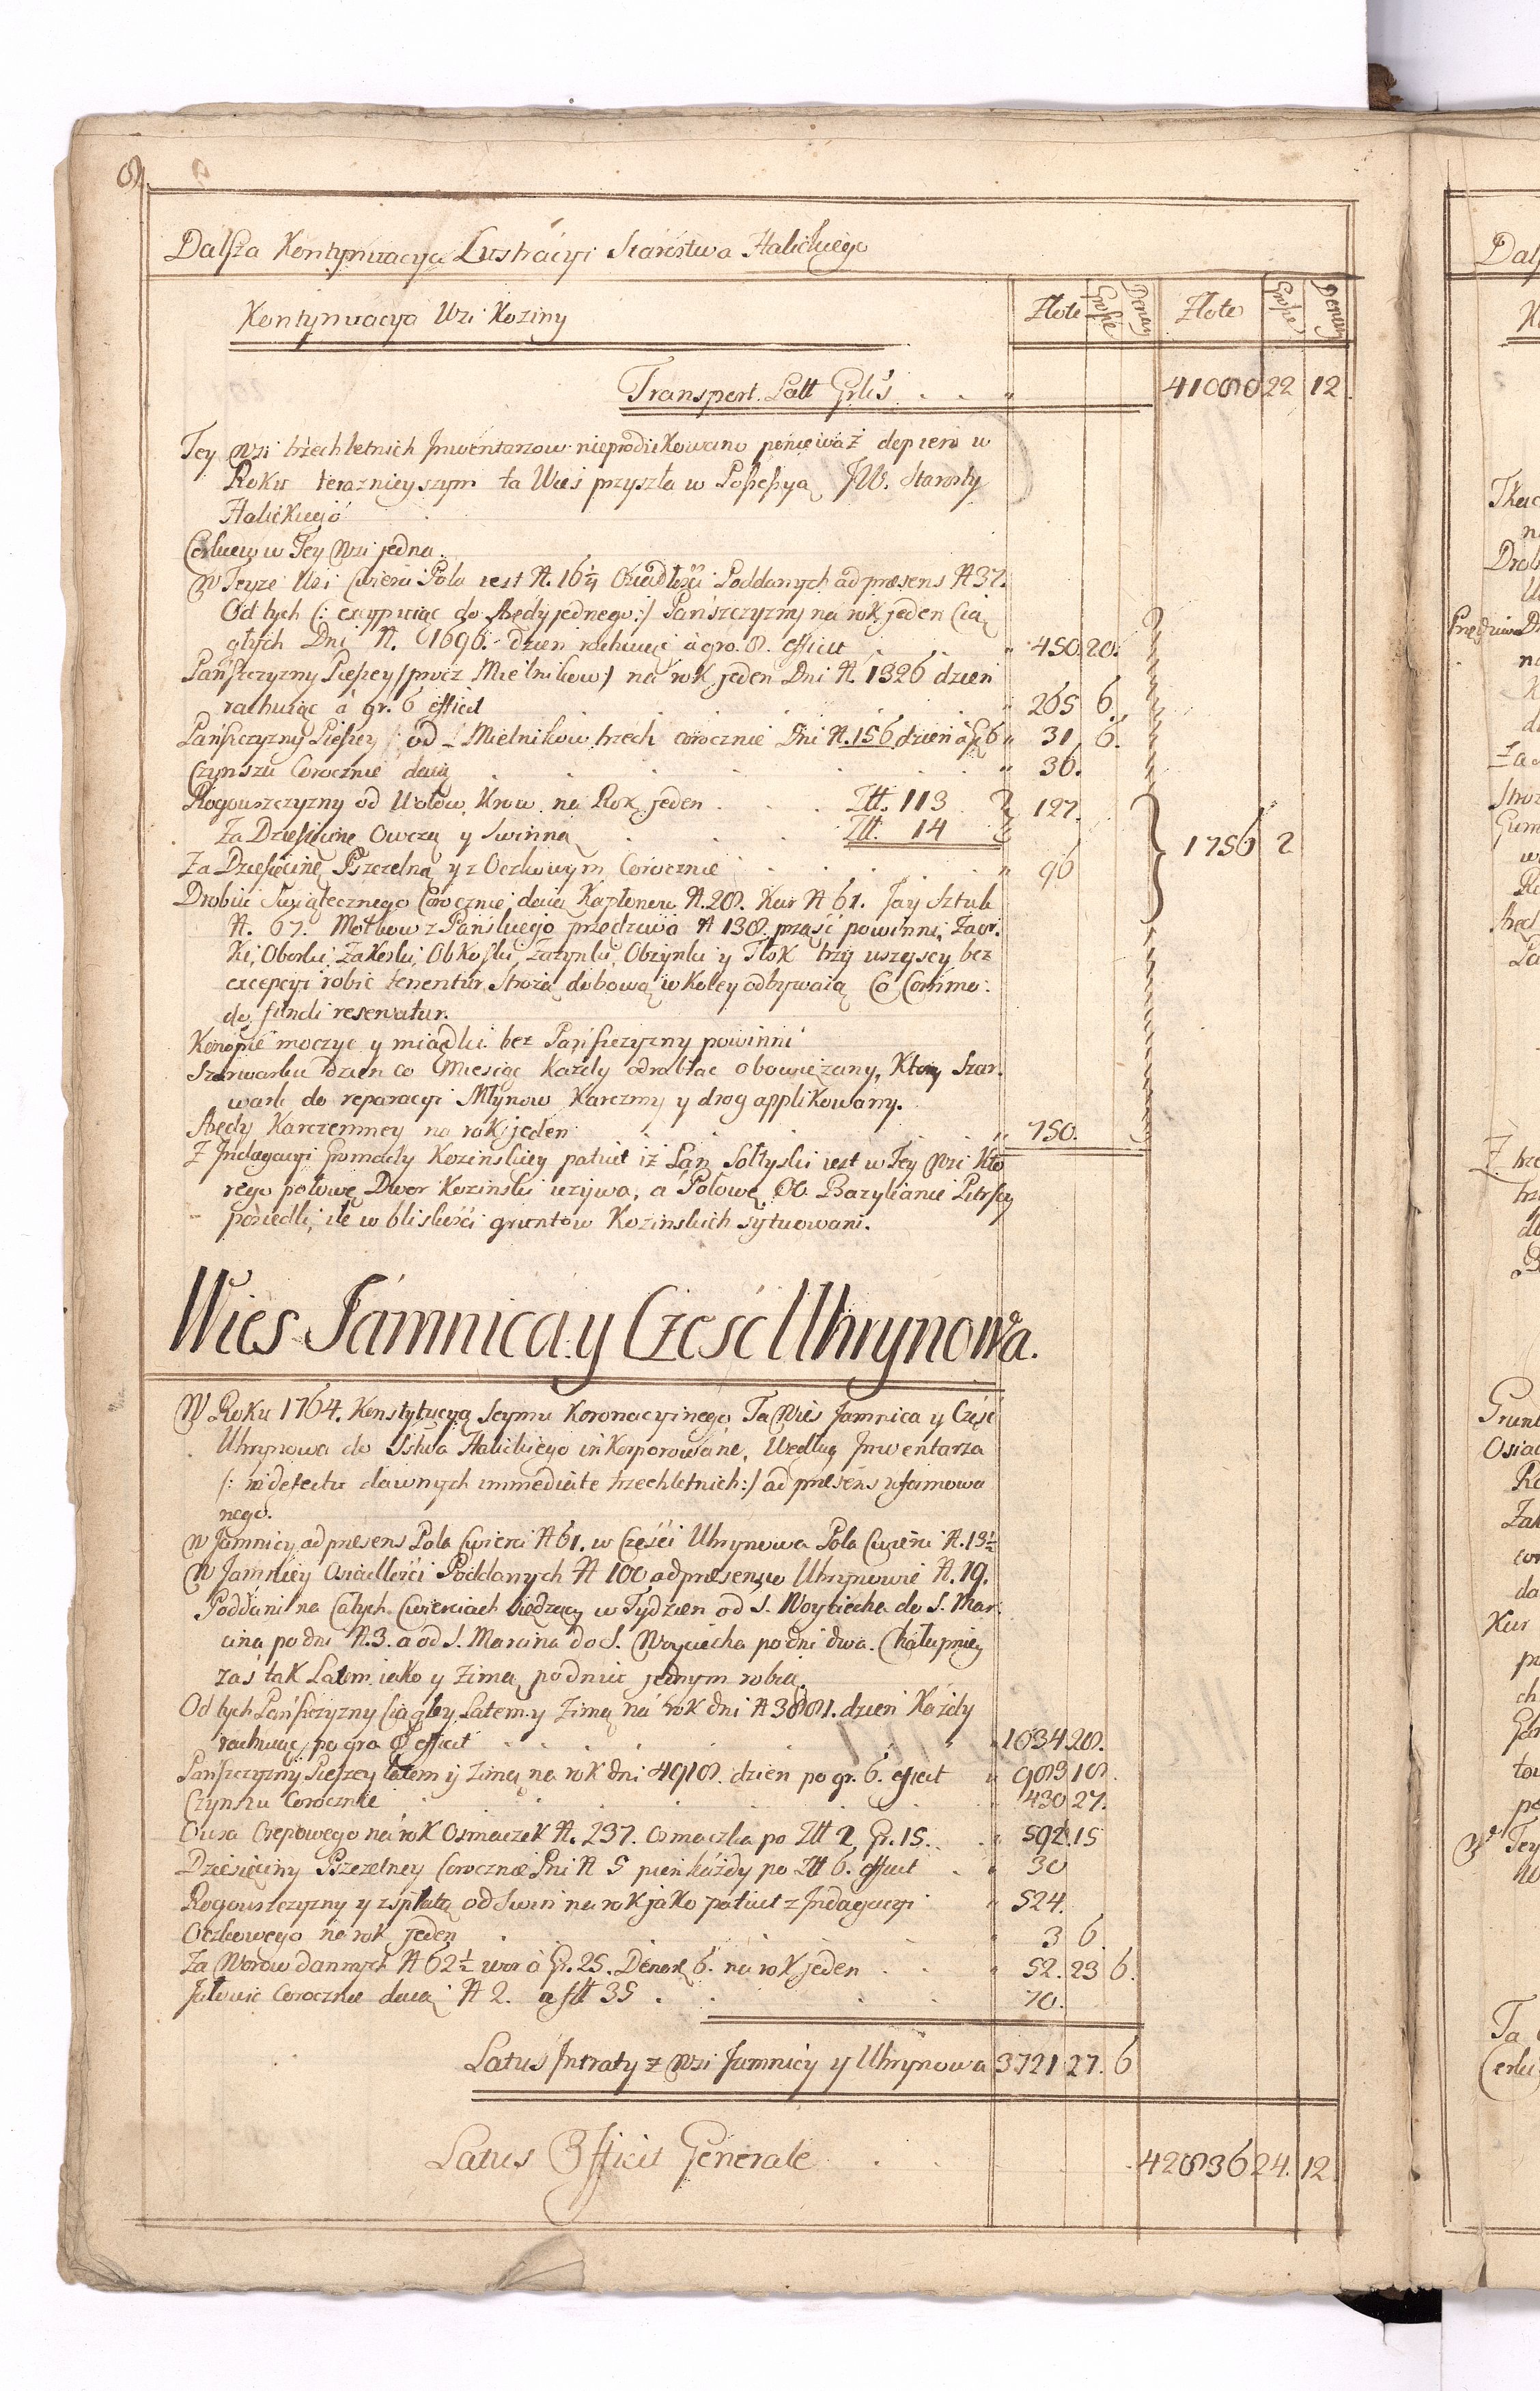 8.
Dalsza Kontynuacya Lustracyi Starostwa Halickiego
Kontynuacya Wsi Koziny Złote Grosze Denary Złote Grosze Denary
Transport. Latt Grlis . . „ 41080 22 12.
Tey Wsi trzechletnich Jnwentarzow nieprodukowano ponieważ dopiero w
Roku teraznieyszym ta Wieś przyszła w Possessyą JW. Starosty
Halickiego
Cerkiew w Tey Wsi jedna.
W Teyze Wsi Cwierci Pola iest N. 16¼ Osiadłości Poddanych ad præsens N 37.
Od tych (: excypuiąc do Arędy jednego :) Pańszczyzny na rok jeden Cią
głych Dni N. 1690. dzien rachuiąc à gro. 8. efficit „ 450 20.
Pańszczyzny Pieszey /prócz Mielnikow/ na rok jeden Dni N. 1326 dzien
rachuiąc à gr. 6 efficit „ 265 6.
Pańszczyzny Pieszey od Mielnikow trzech corocznie Dni N. 156 dzien à g 6 „ 31 6.
Czynszu Corocznie daią „ 36.
Rogowszczyzny od Wołow, Krow na Rok jeden . . . Złł. 113 127.
Za Dziesięcinę Owczą y Swinną . . Złł. 14
1756 2
Za Dziesięcinę Pszczelną y z Oczkowym Corocznie „ 96
Drobiu Swiątecznego Corocznie daią Kapłonow N. 28. Kur N 61. Jay Sztuk
N. 67. Motkow z Pańskiego przędziwa N 138. prząść powinni, Zaor.
ki, Oborki, Zakoski, Obkoski, Zażynki, Obżynki y Tłok trzy wszyscy bez
excepcyi robić tenentur, Strożą dobową w koley odbywaią Co Commo.
do fundi reservatur.
Konopie moczyc y miądlic bez Pańszczyzny powinni
Szarwarku dzien co Miesiąc Każdy odrabiac obowiązany, Ktory Szar.
wark do reparacyi Młynow Karczmy y drog applikowany.
Arędy Karczemney na rok jeden „ 750.
Z Jndagacyi Gromady Kozinskiey patuit iż Łan Sołtyski iest w Tey Wsi Kto
rego połowę Dwor Kozinski używa, a Połowę OO. Bazylianie
posiedli, ile w bliskości gruntow Kozinskich sytuowani.
Wies Jamnica y Cześć Uhrynowa.
W Roku 1764. Konstytucyą Seymu Koronacyinego Ta Wieś Jamnica y Część
Uhrynowa do Sstwa Halickiego inkorporowane, Według Jnwentarza
(: in defectu dawnych immediate trzechletnich :) ad præsens uformowa
nego.
W Jamnicy ad præsens Pola Cwierci N 61. w Części Uhrynowa Pola Cwierci N. 13½
W Jamnicy Osiadłości Poddanych N 100 ad præsens w Uhrynowie N. 19.
Poddani na Całych Cwierciach siedzący w Tydzien od S. Woyciecha do S. Mar.
cina po dni N. 3. a od S. Marcina do S. Woyciecha po dni dwa. Chałupnicy
zaś tak Latem iako y Zimą po dniu jednym robią.
Od tych Pańszczyzny Ciągłey Latem y Zimą na rok dni N 3881. dzien Każdy
rachuiąc po gro 8 efficit „ 1034 28.
Pańszczyzny Pieszey latem y Zimą na rok dni 4918. dzien po gr. 6. efficit „ 983 18.
Czynszu Corocznie „ 430 27.
Owsa Czepowego na rok Osmaczek N. 237. osmaczka po Złł 2 Gr. 15. „ 592.15
Dziesięciny Pszczelney Corocznie Pni N 5 pień każdy po Złł 6. efficit „ 30
Rogowszczyzny y zspłatą od Swin na rok jako patuit z Jndagacyi „ 524.
Oczkowego na rok jeden „ 3 6
Za Worow dannych N 62½ wor à Gr. 25. Denar 6. na rok jeden „ 52. 23 6.
Jałowic Corocznie daią N 2. a złł 35 . 70.
Latus Jntraty z Wsi Jamnicy y Uhrynowa 3721 27. 6
Latus Efficit Generale . . 42836 24. 12